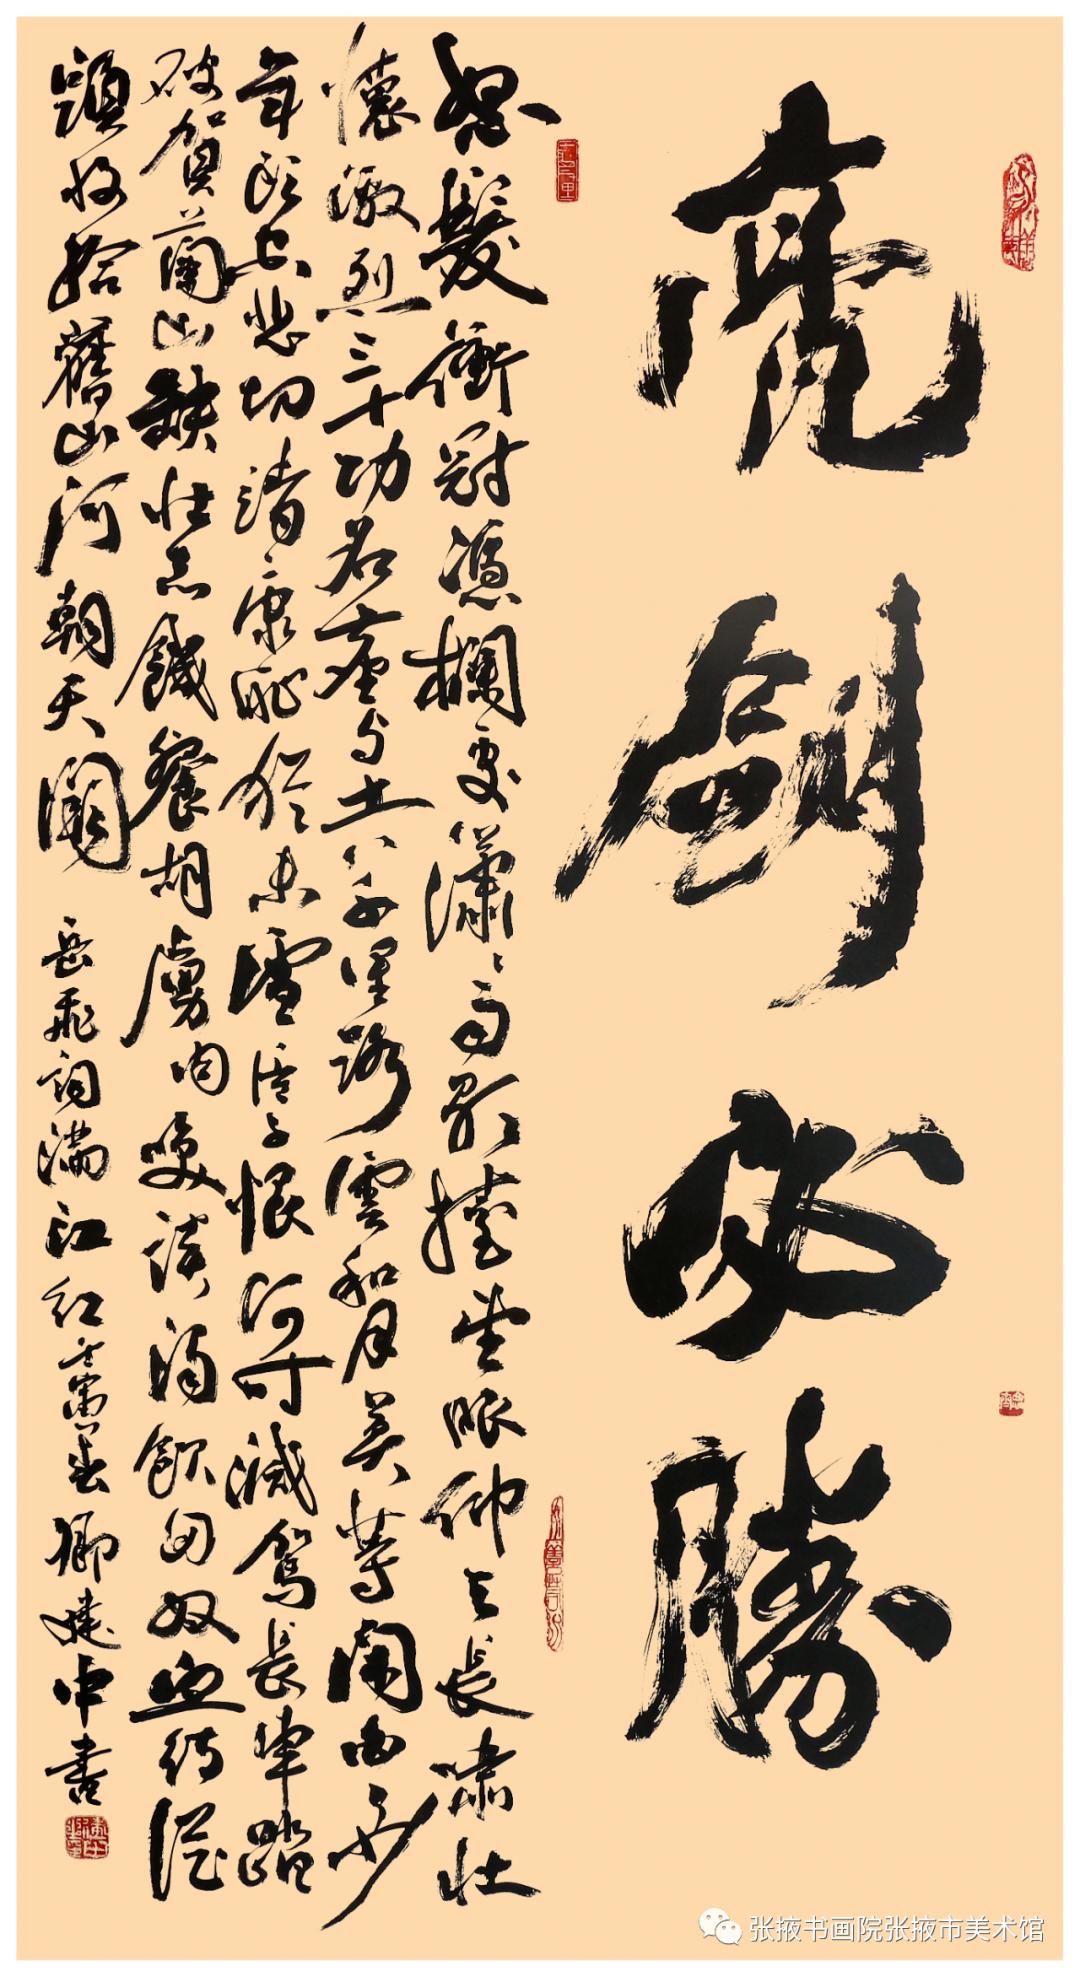 亮劍必勝
怒髮衝冠憑欄處瀟瀟雨歇擡望眼仰天長嘯壯
懷激烈三十功名塵与土八千里路雲和月莫等閑白了少
年頭空悲切靖康耻猶未雪臣子恨何時滅駕長車踏
破賀蘭山缺壯志饑餐胡虜肉笑談渴飲匈奴血待從
頭收拾舊山河朝天闕 岳飛詞滿江紅壬寅春建中書
张掖书画院张掖市美术馆